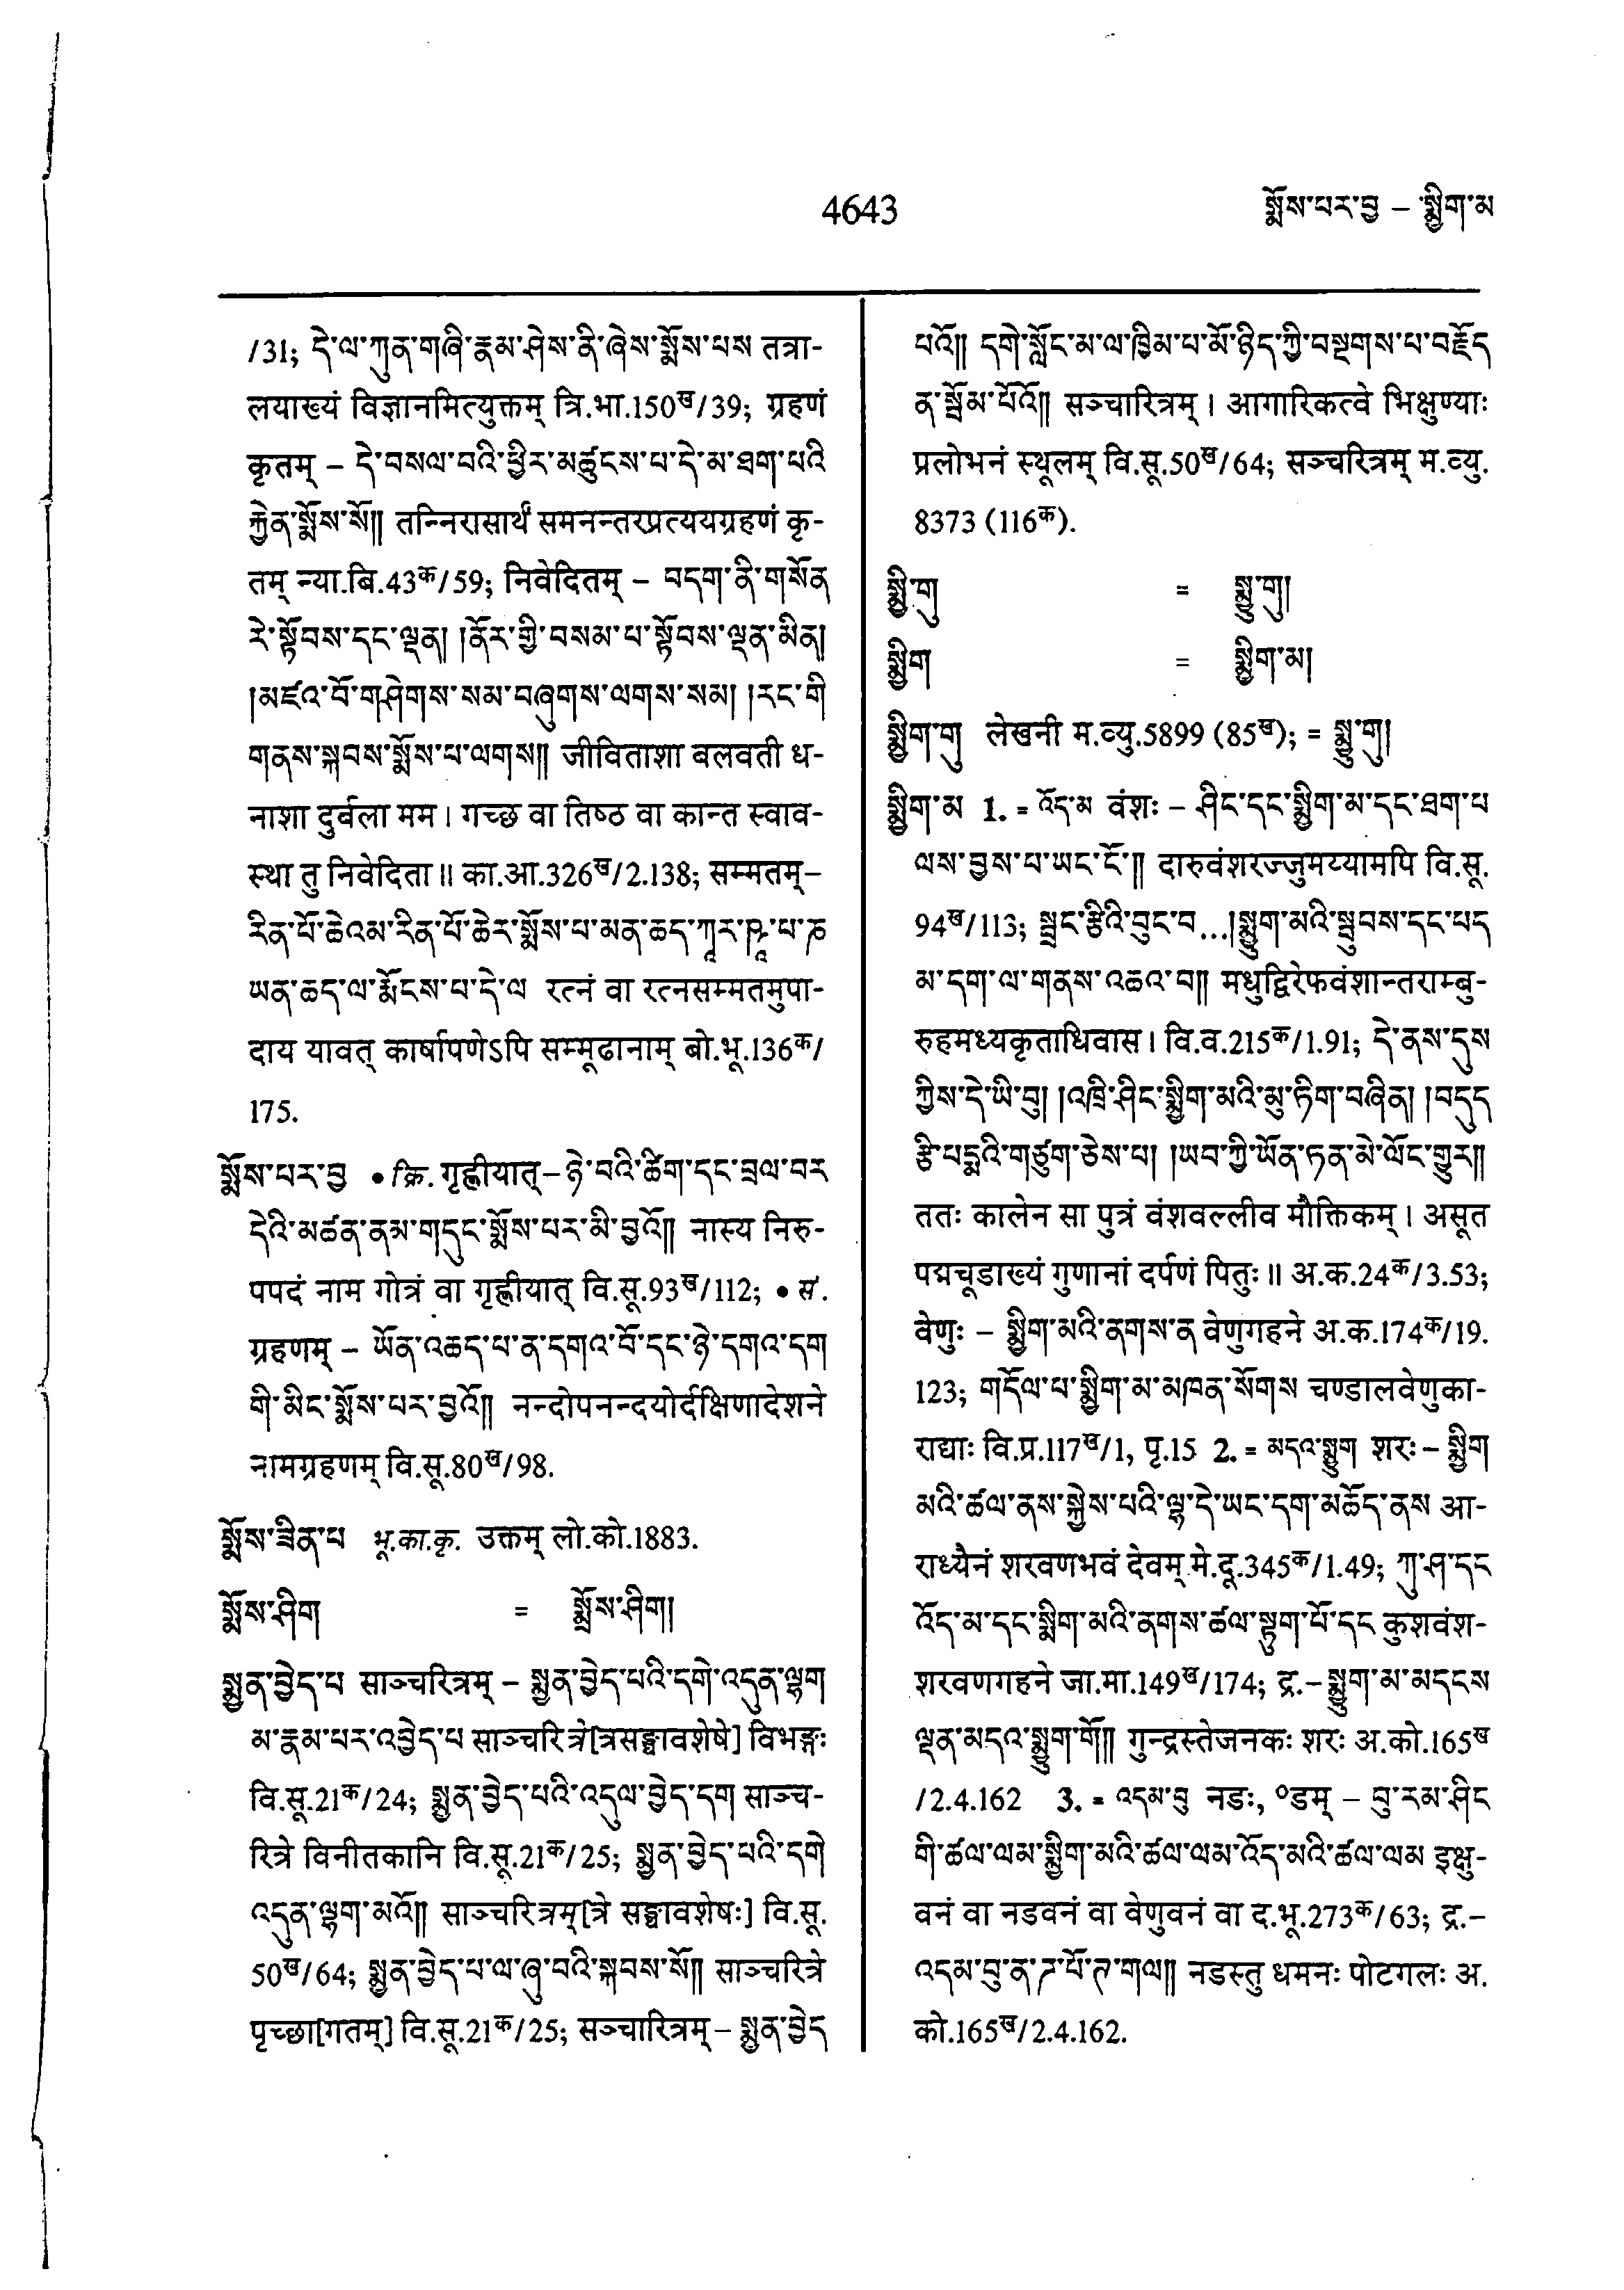 4643
སྨོས་པར་བྱ – སྨྱིག་མ
/31; དེ་ལ་ཀུན་གཞི་རྣམ་ཤེས་ནི་ཞེས་སྨོས་པས तत्रा-
लयाख्यं विज्ञानमित्युक्तम् त्रि.भा.150ख/39; ग्रहणं
कृतम् – དེ་བསལ་བའི་ཕྱིར་མཚུངས་པ་དེ་མ་ཐག་པའི
རྐྱེན་སྨོས་སོ།། तन्निरासार्थं समनन्तरप्रत्ययग्रहणं कृ-
तम् न्या.बि.43क/59; निवेदितम् – བདག་ནི་གསོན
རེ་སྟོབས་དང་ལྡན། །ནོར་གྱི་བསམ་པ་སྟོབས་ལྡན་མིན།
།མཛའ་བོ་གཤེགས་སམ་བཞུགས་ལགས་སམ། །རང་གི
གནས་སྐབས་སྨོས་པ་ལགས།། जीविताशा बलवती ध-
नाशा दुर्बला मम । गच्छ वा तिष्ठ वा कान्त स्वाव-
स्था तु निवेदिता ॥ का.आ.326ख/2.138; सम्मतम्–
རིན་པོ་ཆེའམ་རིན་པོ་ཆེར་སྨོས་པ་མན་ཆད་ཀཱར་ཥཱ་པ་ཎ
ཡན་ཆད་ལ་རྨོངས་པ་དེ་ལ रत्नं वा रत्नसम्मतमुपा-
दाय यावत् कार्षापणेऽपि सम्मूढानाम् बो.भू.136क/
175.
སྨོས་པར་བྱ • क्रि. गृह्णीयात्– ཉེ་བའི་ཚིག་དང་བྲལ་བར
དེའི་མཚན་ནམ་གདུང་སྨོས་པར་མི་བྱའོ།། नास्य निरु-
पपदं नाम गोत्रं वा गृह्णीयात् वि.सू.93ख/112; • सं.
ग्रहणम् – ཡོན་འཆད་པ་ན་དགའ་བོ་དང་ཉེ་དགའ་དག
གི་མིང་སྨོས་པར་བྱའོ།། नन्दोपनन्दयोर्दक्षिणादेशने
नामग्रहणम् वि.सू.80ख/98.
སྨོས་ཟིན་པ भू.का.कृ. उक्तम् लो.को.1883.
སྨོས་ཤིག = སྨྲོས་ཤིག།
སྨྱན་བྱེད་པ साञ्चरित्रम् – སྨྱན་བྱེད་པའི་དགེ་འདུན་ལྷག
མ་རྣམ་པར་འབྱེད་པ साञ्चरित्रे[त्रसङ्घावशेषे] विभङ्गः
वि.सू.21क/24; སྨྱན་བྱེད་པའི་འདུལ་བྱེད་དག साञ्च-
रित्रे विनीतकानि वि.सू.21क/25; སྨྱན་བྱེད་པའི་དགེ
འདུན་ལྷག་མའོ།། साञ्चरित्रम्[त्रे सङ्घावशेषः] वि.सू.
50ख/64; སྨྱན་བྱེད་པ་ལ་ཞུ་བའི་སྐབས་སོ།། साञ्चरित्रे
पृच्छा[गतम्] वि.सू.21क/25; सञ्चारित्रम् – སྨྱན་བྱེད
པའོ།། དགེ་སློང་མ་ལ་ཁྱིམ་པ་མོ་ཉིད་ཀྱི་བསྔགས་པ་བརྗོད
ན་སྦོམ་པོའོ།། सञ्चारित्रम् । आगारिकत्वे भिक्षुण्याः
प्रलोभनं स्थूलम् वि.सू.50ख/64; सञ्चरित्रम् म.व्यु.
8373 (116क).
སྨྱི་གུ = སྨྱུ་གུ།
སྨྱིག = སྨྱིག་མ།
སྨྱིག་གུ लेखनी म.व्यु.5899 (85ख); = སྨྱུ་གུ།
སྨྱིག་མ 1. = འོད་མ वंशः – ཤིང་དང་སྨྱིག་མ་དང་ཐག་པ
ལས་བྱས་པ་ཡང་ངོ་།། दारुवंशरज्जुमय्यामपि वि.सू.
94ख/113; སྦྲང་རྩིའི་བུང་བ...།སྨྱུག་མའི་སྦུབས་དང་པད
མ་དག་ལ་གནས་འཆའ་བ།། मधुद्विरेफवंशान्तराम्बु-
रुहमध्यकृताधिवास । वि.व.215क/1.91; དེ་ནས་དུས
ཀྱིས་དེ་ཡི་བུ། །འཁྲི་ཤིང་སྨྱིག་མའི་མུ་ཏིག་བཞིན། །བདུད
རྩི་པདྨའི་གཙུག་ཅེས་པ། །ཡབ་ཀྱི་ཡོན་ཏན་མེ་ལོང་གྱུར།།
ततः कालेन सा पुत्रं वंशवल्लीव मौक्तिकम् । असूत
पद्मचूडाख्यं गुणानां दर्पणं पितुः ॥ अ.क.24क/3.53;
वेणुः – སྨྱིག་མའི་ནགས་ན वेणुगहने अ.क.174क/19.
123; གདོལ་པ་སྨྱིག་མ་མཁན་སོགས चण्डालवेणुका-
राद्याः वि.प्र.117ख/1, पृ.15 2. = མདའ་སྨྱུག शरः – སྨྱིག
མའི་ཚལ་ནས་སྐྱེས་པའི་ལྷ་དེ་ཡང་དག་མཆོད་ནས आ-
राध्यैनं शरवणभवं देवम् मे.दू.345क/1.49; ཀུ་ཤ་དང
འོད་མ་དང་སྨིག་མའི་ནགས་ཚལ་སྟུག་པོ་དང कुशवंश-
शरवणगहने जा.मा.149ख/174; द्र.– སྨྱུག་མ་མདངས
ལྡན་མདའ་སྨྱུག་གོ།། गुन्द्रस्तेजनकः शरः अ.को.165ख
/2.4.162 3. = འདམ་བུ नडः, ०डम् – བུ་རམ་ཤིང
གི་ཚལ་ལམ་སྨྱིག་མའི་ཚལ་ལམ་འོད་མའི་ཚལ་ལམ इक्षु-
वनं वा नडवनं वा वेणुवनं वा द.भू.273क/63; द्र.–
འདམ་བུ་ན་ཌ་པོ་ཊ་གལ།། नडस्तु धमनः पोटगलः अ.
को.165ख/2.4.162.